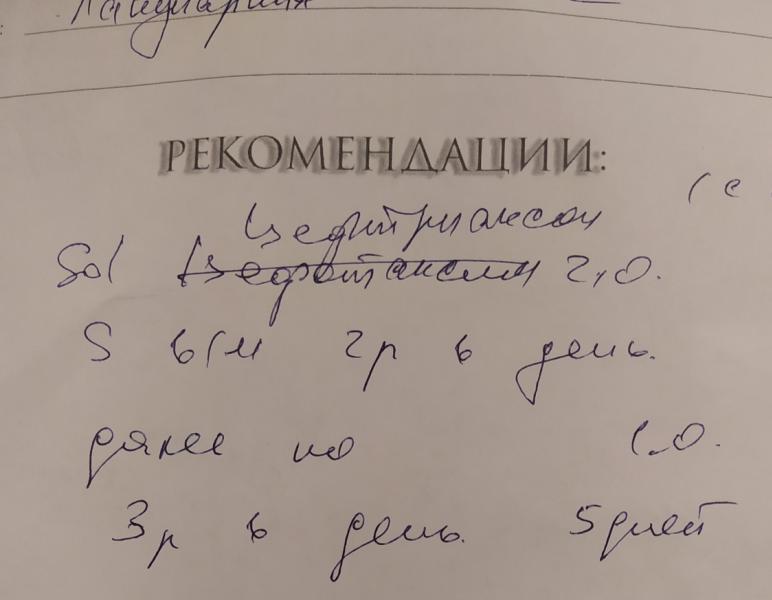 РЕКОМЕНДАЦИИ:
(с
Цефтриаксон
Sol Цефотаксим 2,0.
S в/м 2р в день.
далее по 1.0.
3р в день. 5 дней